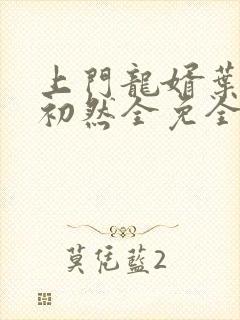 上門龍婿葉
初然全免全
莫凭藍2